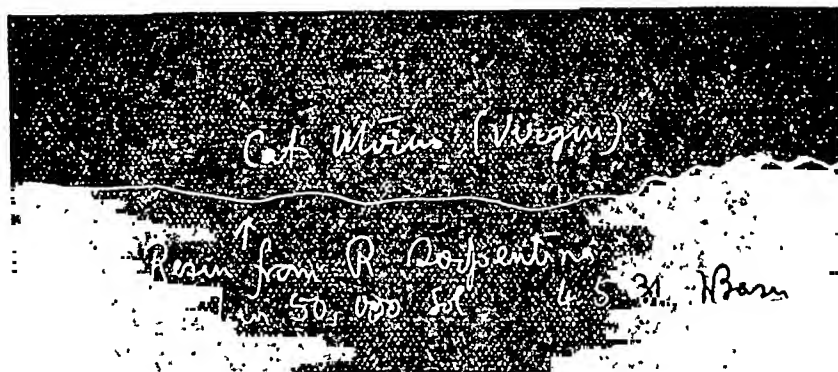 Cat Uterus (Virgin)
↑
Resin from R. Serpentina
in 50,000 Sol. 4 5 31